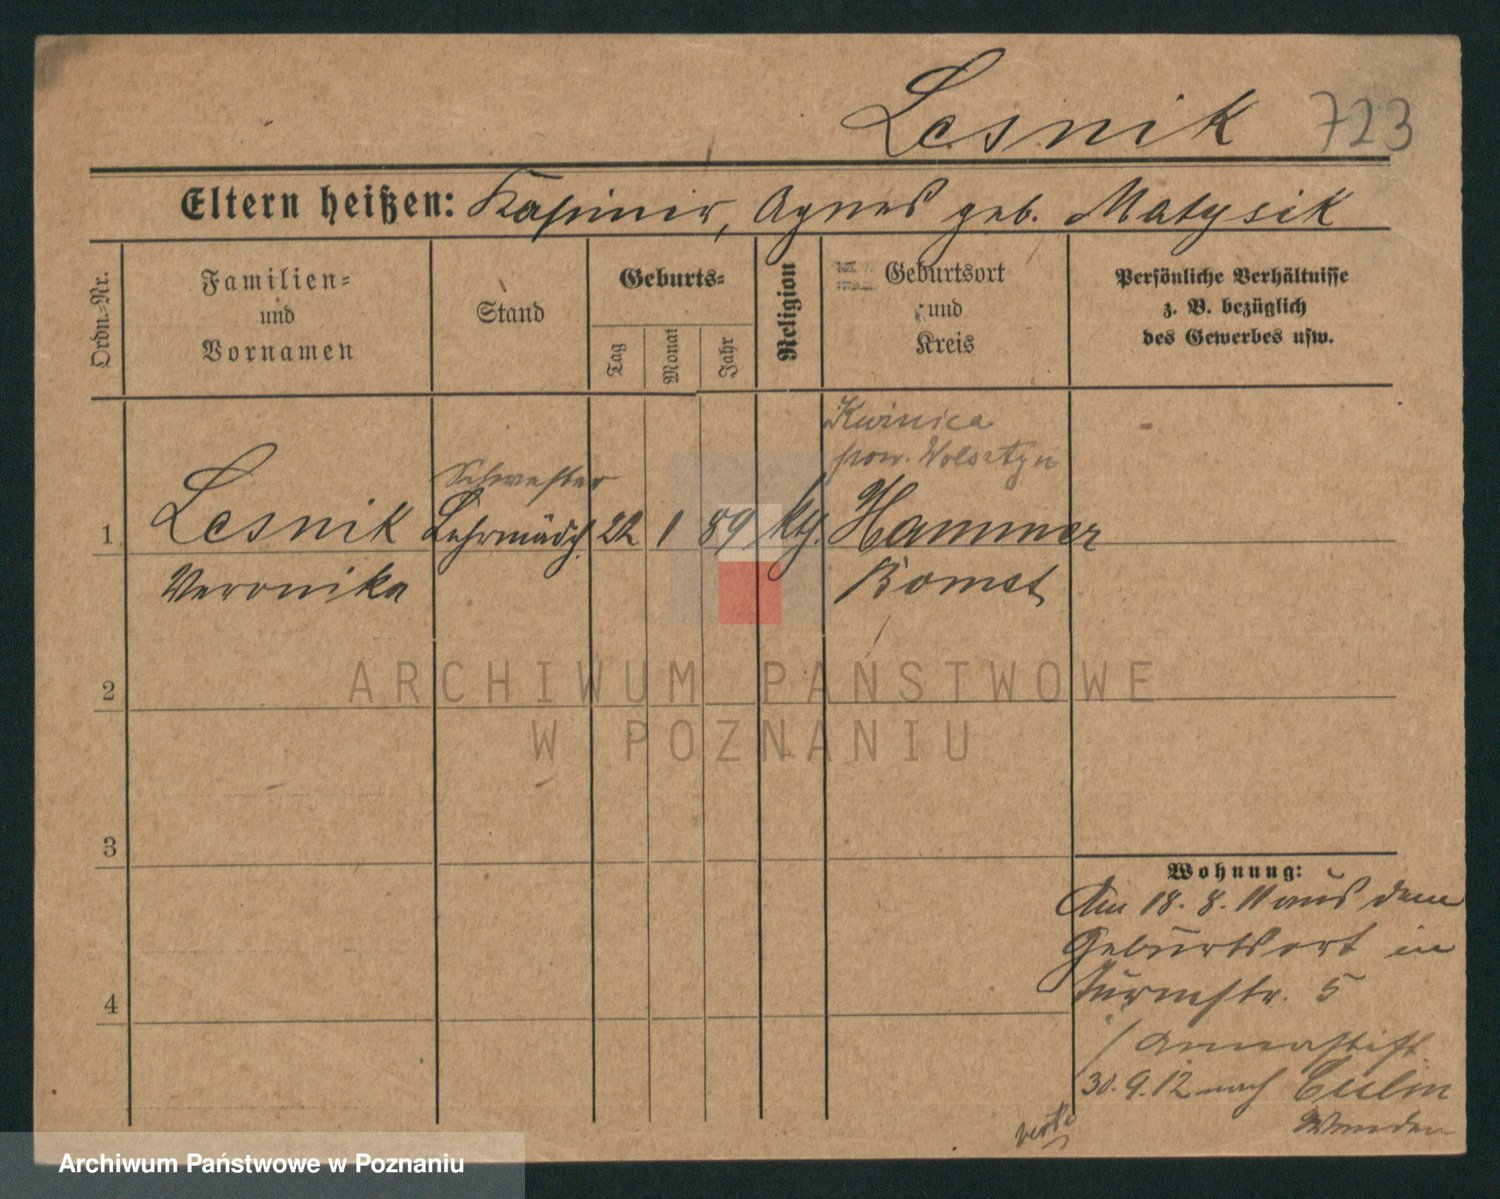 Lesnik 723
Eltern heißen: Kasimir, Agnes geb. Matysik
Ordn.-Nr.
Familien-
und
Vornamen
Stand
Geburts-
Tag
Monat
Jahr
Religion
Geburtsort
und
Kreis
Persönliche Verhältnisse
z. B. bezüglich
des Gewerbes usw.
Kuźnica
pow. Wolsztyn
Schwester
1 Lesnik Lehrmädch. 22 1 89 ktg. Hammer
Veronika Bomst
2
3
4
Wohnung:
Am 18. 8. 11 aus dem
Geburtsort in
Turmstr. 5
/ Annastift
30. 9. 12 nach Culm
Wenden
verte
ARCHIWUM PAŃSTWOWE
W POZNANIU
Archiwum Państwowe w Poznaniu